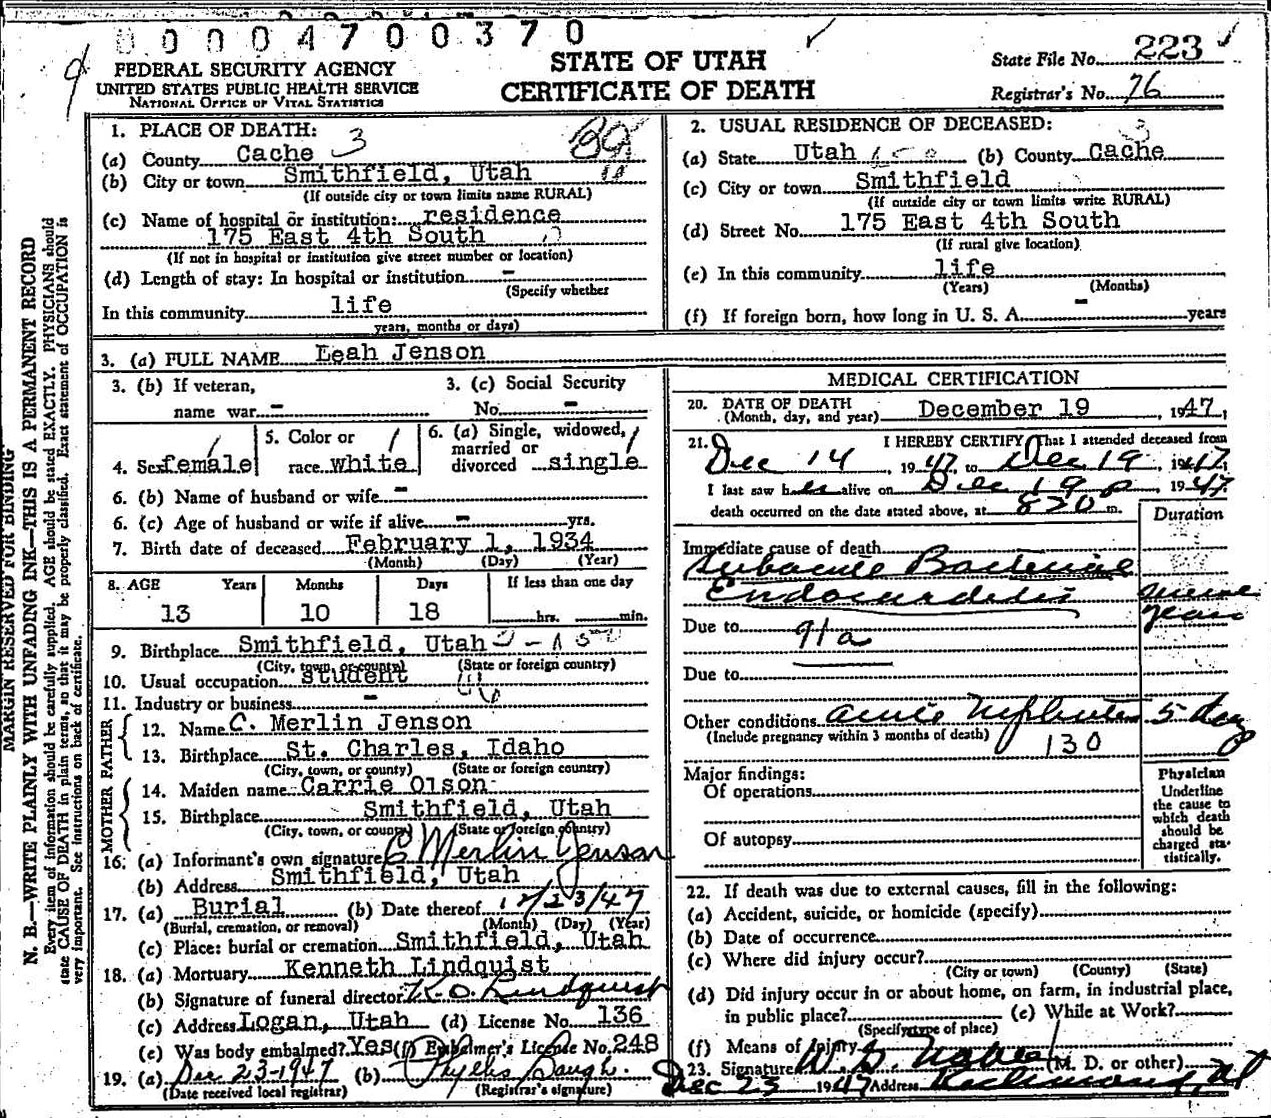 00004700370
FEDERAL SECURITY AGENCY
UNITED STATES PUBLIC HEALTH SERVICE
NATIONAL OFFICE OF VITAL STATISTICS
STATE OF UTAH
CERTIFICATE OF DEATH
State File No. 223
Registrar's No. 76
MARGIN RESERVED FOR BINDING
N. B.—WRITE PLAINLY WITH UNFADING INK—THIS IS A PERMANENT RECORD
Every item of information should be carefully supplied. AGE should be stated EXACTLY. PHYSICIANS should
state CAUSE OF DEATH in plain terms, so that it may be properly classified. Exact statement of OCCUPATION is
very important. See instructions on back of certificate.
1. PLACE OF DEATH:
(a) County Cache 3
(b) City or town Smithfield, Utah
(If outside city or town limits name RURAL)
(c) Name of hospital or institution: residence
175 East 4th South
(If not in hospital or institution give street number or location)
(d) Length of stay: In hospital or institution -
(Specify whether
In this community life
years, months or days)
2. USUAL RESIDENCE OF DECEASED:
3
(a) State Utah (b) County Cache
(c) City or town Smithfield
(If outside city or town limits write RURAL)
(d) Street No. 175 East 4th South
(If rural give location)
(e) In this community life
(Years) (Months)
(f) If foreign born, how long in U. S. A. - years
3. (a) FULL NAME Leah Jenson
3. (b) If veteran, name war -
3. (c) Social Security No. -
4. Sex female
5. Color or race white
6. (a) Single, widowed, married or divorced single
6. (b) Name of husband or wife -
6. (c) Age of husband or wife if alive - yrs.
7. Birth date of deceased February 1, 1934
(Month) (Day) (Year)
8. AGE Years Months Days If less than one day
13 10 18 hrs. min.
9. Birthplace Smithfield, Utah
(City, town, or county) (State or foreign country)
10. Usual occupation student
11. Industry or business -
FATHER
12. Name C. Merlin Jenson
13. Birthplace St. Charles, Idaho
(City, town, or county) (State or foreign country)
MOTHER
14. Maiden name Carrie Olson
15. Birthplace Smithfield, Utah
(City, town, or county) (State or foreign country)
16. (a) Informant's own signature C Merlin Jenson
(b) Address Smithfield, Utah
17. (a) Burial (b) Date thereof 12/23/47
(Burial, cremation, or removal) (Month) (Day) (Year)
(c) Place: burial or cremation Smithfield, Utah
18. (a) Mortuary Kenneth Lindquist
(b) Signature of funeral director K. O. Lindquist
(c) Address Logan, Utah (d) License No. 136
(e) Was body embalmed? Yes (f) Embalmer's License No. 248
19. (a) Dec 23-1947 (b) Phyllis Baugh.
(Date received local registrar) (Registrar's signature)
MEDICAL CERTIFICATION
20. DATE OF DEATH
(Month, day, and year) December 19, 1947,
21. I HEREBY CERTIFY That I attended deceased from
Dec 14, 1947, to Dec 19, 1947;
I last saw her alive on Dec 19, 1947.
death occurred on the date stated above, at 820 p m.
Duration
Immediate cause of death
Subacute Bacterial
Endocarditis
Due to 91a
Due to
Other conditions acute Nephritis 5 days
(Include pregnancy within 3 months of death) 130
Major findings:
Of operations
Of autopsy
Physician
Underline
the cause to
which death
should be
charged sta-
tistically.
22. If death was due to external causes, fill in the following:
(a) Accident, suicide, or homicide (specify)
(b) Date of occurrence
(c) Where did injury occur?
(City or town) (County) (State)
(d) Did injury occur in or about home, on farm, in industrial place,
in public place? (e) While at Work?
(Specify type of place)
(f) Means of Injury
23. Signature (M. D. or other)
Dec 23 1947 Address Richmond, Ut